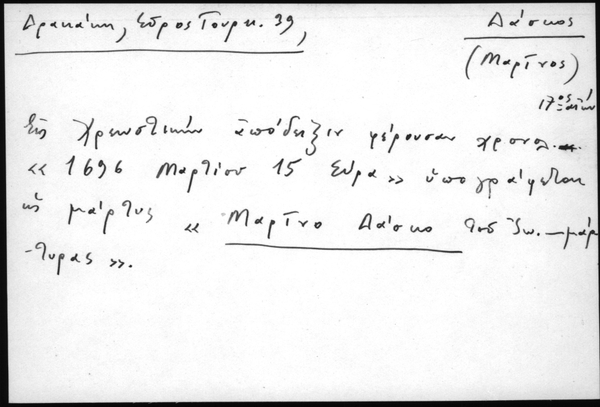 Δρακάκη, Σῦρος Τουρκ. 39,
Δάσκος
(Μαρῖνος)
17ος αἰών
Εἰς χρεωστικὴν ἀπόδειξιν φέρουσαν χρονολ.
« 1696 Μαρτίου 15 Σύρα » ὑπογράφεται
ὡς μάρτυς « Μαρῖνο Δάσκο τοῦ Ἰω. μάρ
-τυρας ».